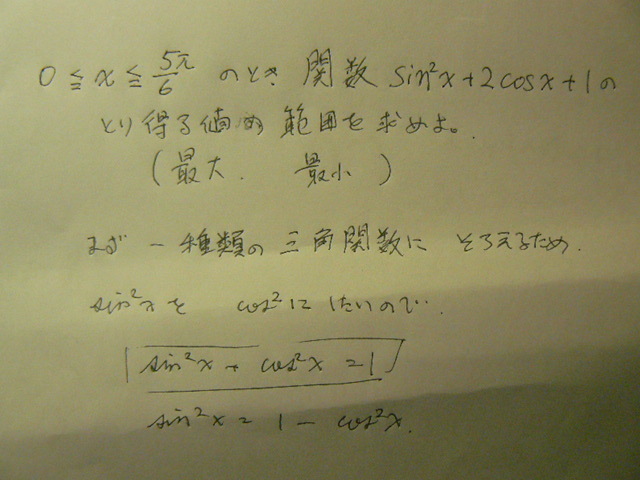 0 ≦ x ≦ 5π/6 のとき 関数 sin²x+2cosx+1の
とり得る値の範囲を求めよ。
(最大. 最小)
まず 一種類の三角関数に そろえるため.
sin²xを cos²にしたいので..
sin²x + cos²x = 1
sin²x = 1 - cos²x.